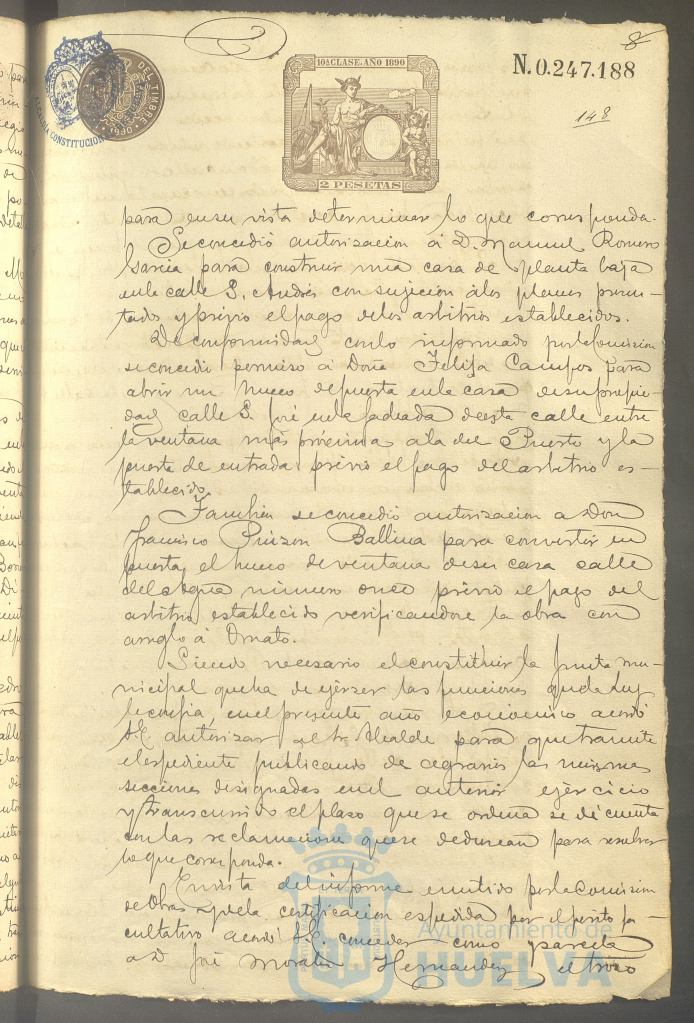 8
10ª CLASE.-AÑO 1890
N.0.247.188
148
DEL TIMBRE
ALCALDIA CONSTITUCIONAL
2 PESETAS
para en su vista determinar lo que corresponda.
Se concedió autorizacion á D. Manuel Romero
Garcia para construir una casa de planta baja
en la calle S. Andrés con sujecion á los planos presen-
tados y previo el pago de los arbitrios establecidos.
De conformidad con lo informado por la Comision
se concedió permiso á Doña Felisa Campos para
abrir un hueco de puerta en la casa de su propie-
dad calle S. José en la fachada de esta calle entre
la ventana más próxima a la del Puerto y la
puerta de entrada previo el pago del arbitrio es-
tablecido.
Tambien se concedió autorizacion a Don
Francisco Pinzon Ballina para convertir en
puerta el hueco de ventana de su casa calle
del Agua número once previo el pago del
arbitrio establecido verificandose la obra con
arreglo á Ornato.
Siendo necesario el constituir la Junta mu-
nicipal que ha de ejerser las funciones que la Ley
le confia, en el presente año económico acordó
S.E. autorizar al Sr. Alcalde para que tramite
el espediente publicando de
las mismas
secciones designadas en el anterior ejercicio
y transcurrido el plazo que se ordena se dé cuenta
con las reclamaciones que se deduzcan para resolver
lo que corresponda.
En vista del informe emitido por la Comision
de Obras y de la certificacion espedida por el perito fa-
cultativo acordó S.E. conceder como parcela
a D. José Morales Hernandez el trozo
Ayuntamiento de
HUELVA